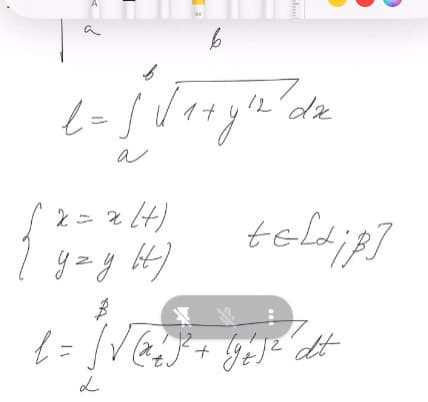 a b
l = ∫_a^b √(1 + y'²) dx
{ x = x(t)
y = y(t) t ∈ [α; β]
l = ∫_α^β √((x'_t)² + (y'_t)²) dt